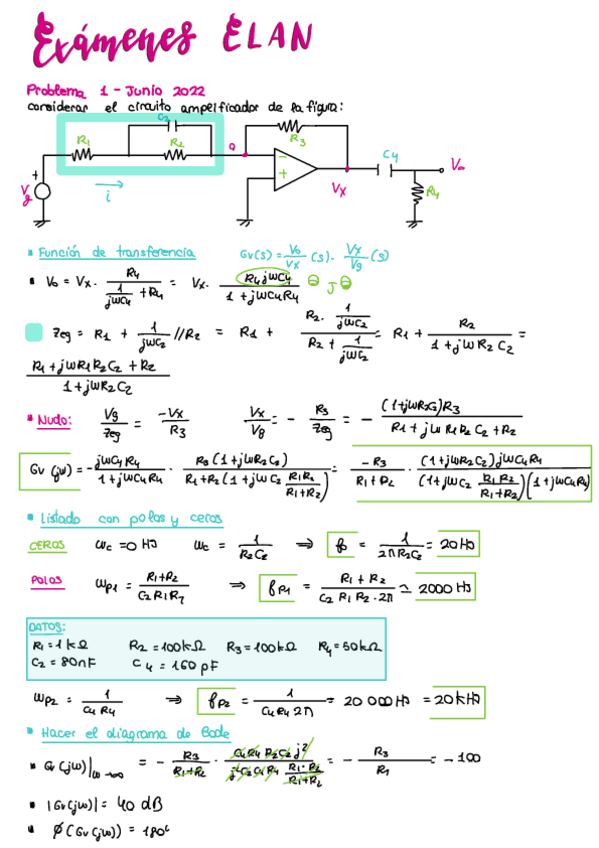 Exámenes ELAN
Problema 1 - Junio 2022
considerar el circuito amplificador de la figura:
C2
R1 R2 R3 C4 V0
+ - + Vg i Vx R4
Función de transferencia Gv(s) = V0/Vx (s) · Vx/Vg (s)
V0 = Vx · R4 / (1/jωC4 + R4) = Vx · R4jωC4 / (1 + jωC4R4)
Zeg = R1 + 1/jωC2 // R2 = R1 + (R2 · 1/jωC2) / (R2 + 1/jωC2) = R1 + R2 / (1 + jωR2C2) =
(R1 + jωR1R2C2 + R2) / (1 + jωR2C2)
Nudo: Vg/Zeg = -Vx/R3 Vx/Vg = - R3/Zeg = - (1+jωR2C2)R3 / (R1 + jωR1R2C2 + R2)
Gv(jω) = -jωC4R4 / (1 + jωC4R4) · R3(1+jωR2C2) / (R1+R2(1+jωC2 R1R2/(R1+R2))) = -R3/(R1+R2) · (1+jωR2C2)jωC4R4 / ((1+jωC2 R1R2/(R1+R2))(1+jωC4R4))
Listado con polos y ceros
CEROS ωc = 0 Hz ωc = 1/R2C2 ⇒ f0 = 1/2πR2C2 = 20 Hz
POLOS ωp1 = (R1+R2)/C2R1R2 ⇒ fp1 = (R1+R2)/(C2R1R2·2π) ≃ 2000 Hz
DATOS:
R1 = 1kΩ R2 = 100kΩ R3 = 100kΩ R4 = 50kΩ
C2 = 80nF C4 = 160pF
ωp2 = 1/C4R4 ⇒ fp2 = 1/C4R42π = 20 000 Hz = 20kHz
Hacer el diagrama de Bode
Gv(jω)|ω→∞ = - R3/(R1+R2) · C4R4R2C2j² / (j²C2C4R4 R1·R2/(R1+R2)) = - R3/R1 = -100
|Gv(jω)| = 40 dB
ϕ(Gv(jω)) = 180º